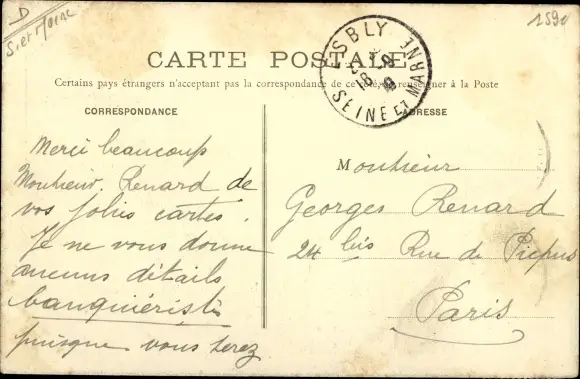 D
S. et Marne
1590
CARTE POSTALE
Certains pays étrangers n'acceptant pas la correspondance de ce côté, se renseigner à la Poste
CORRESPONDANCE
Merci beaucoup
Monsieur Renard de
vos jolies cartes.
Je ne vous donne
aucuns détails
banquiéristi
puisque vous serez
ESBLY
18-9
SEINE ET MARNE
ADRESSE
Monsieur
Georges Renard
24 bis Rue de Picpus
Paris